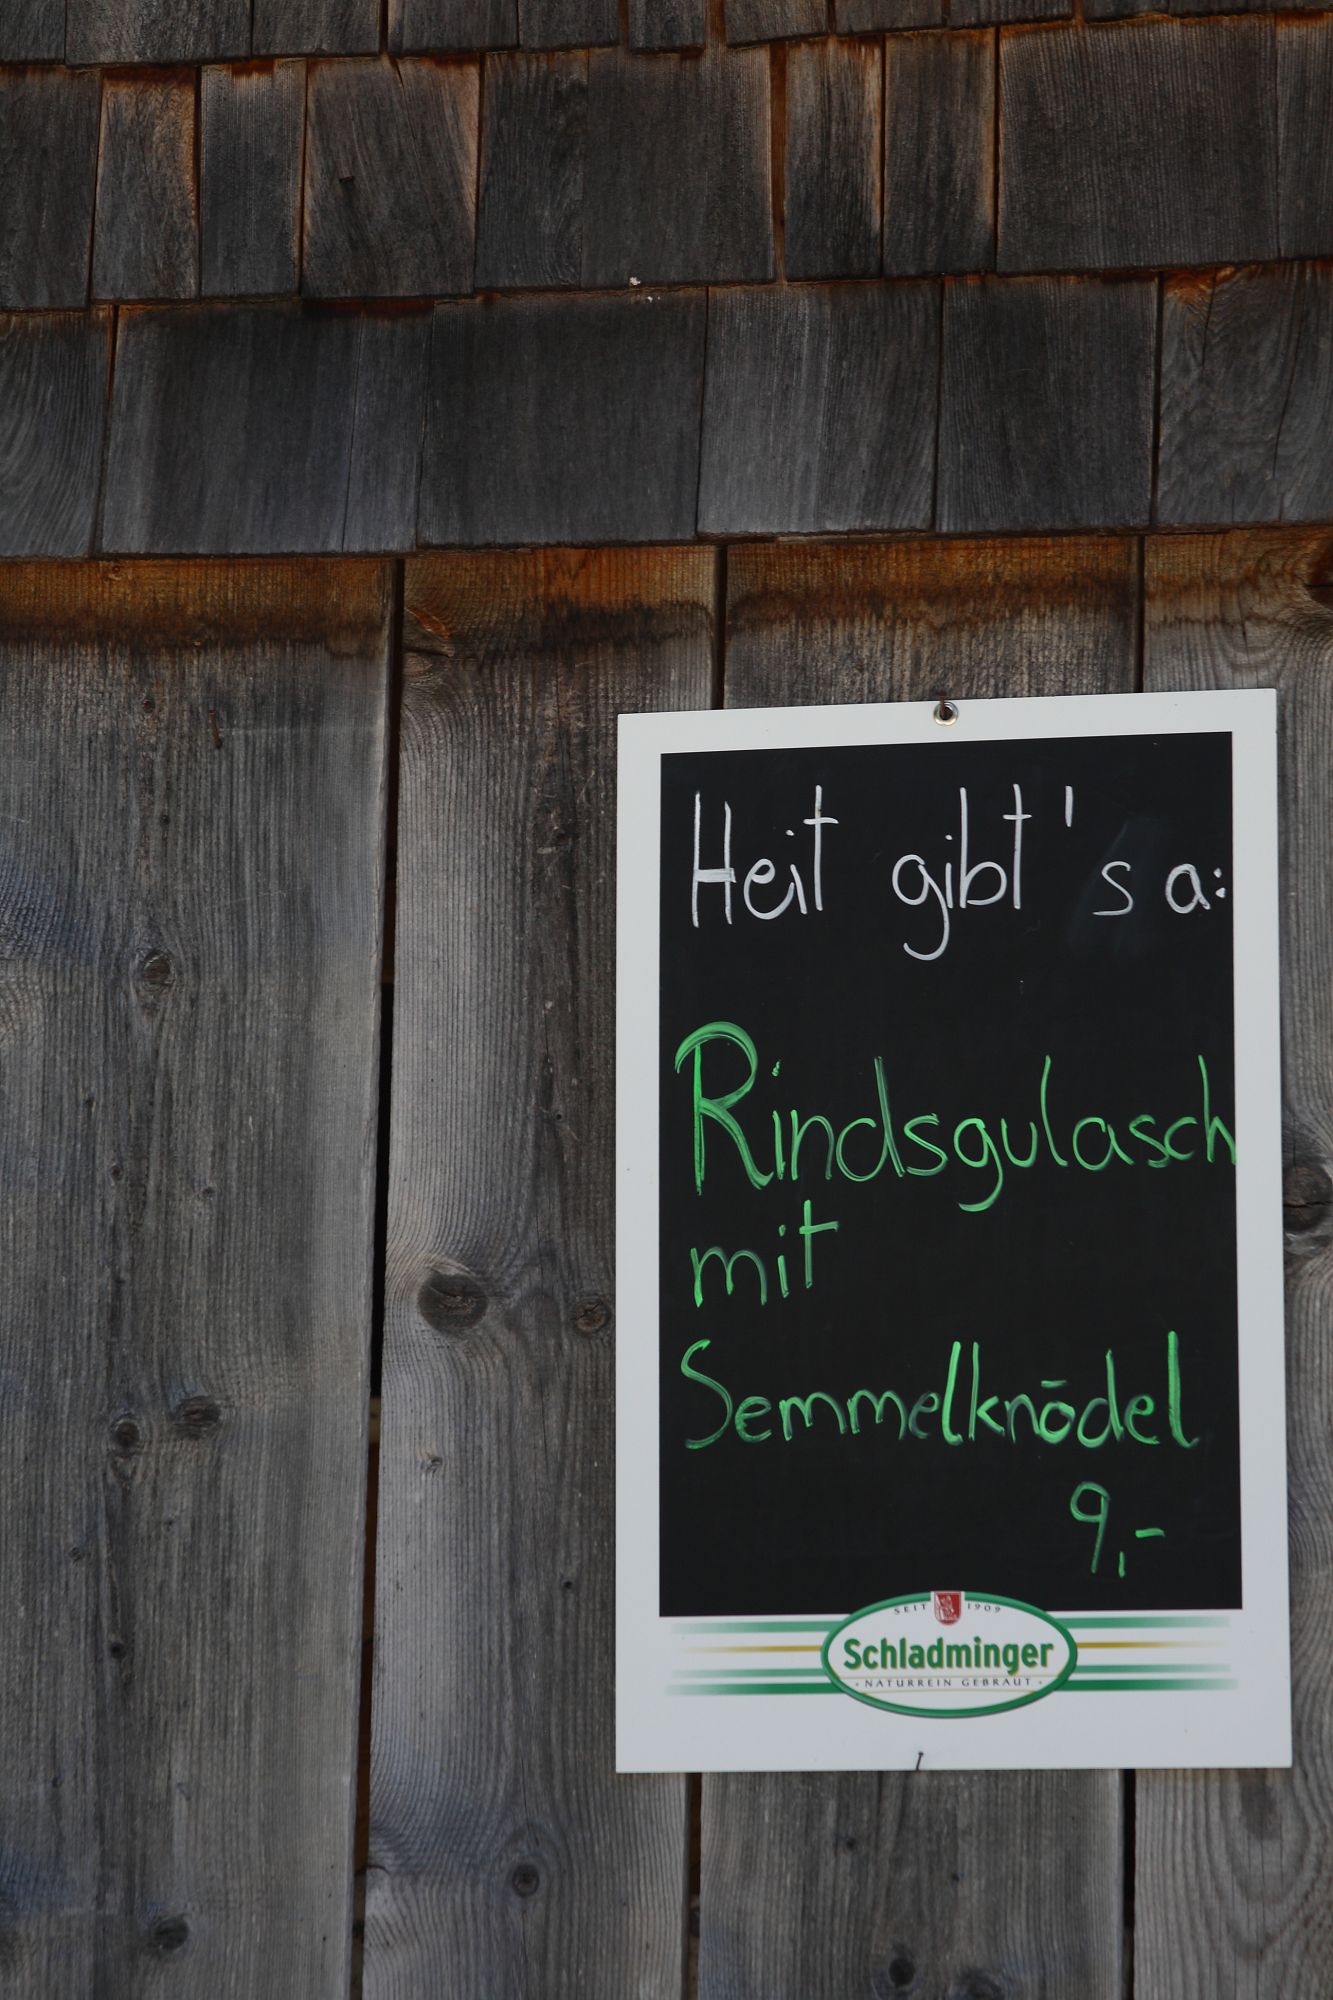 Heit gibt's a:
Rindsgulasch
mit
Semmelknödel
9,-
SEIT 1909
Schladminger
· NATURREIN GEBRAUT ·